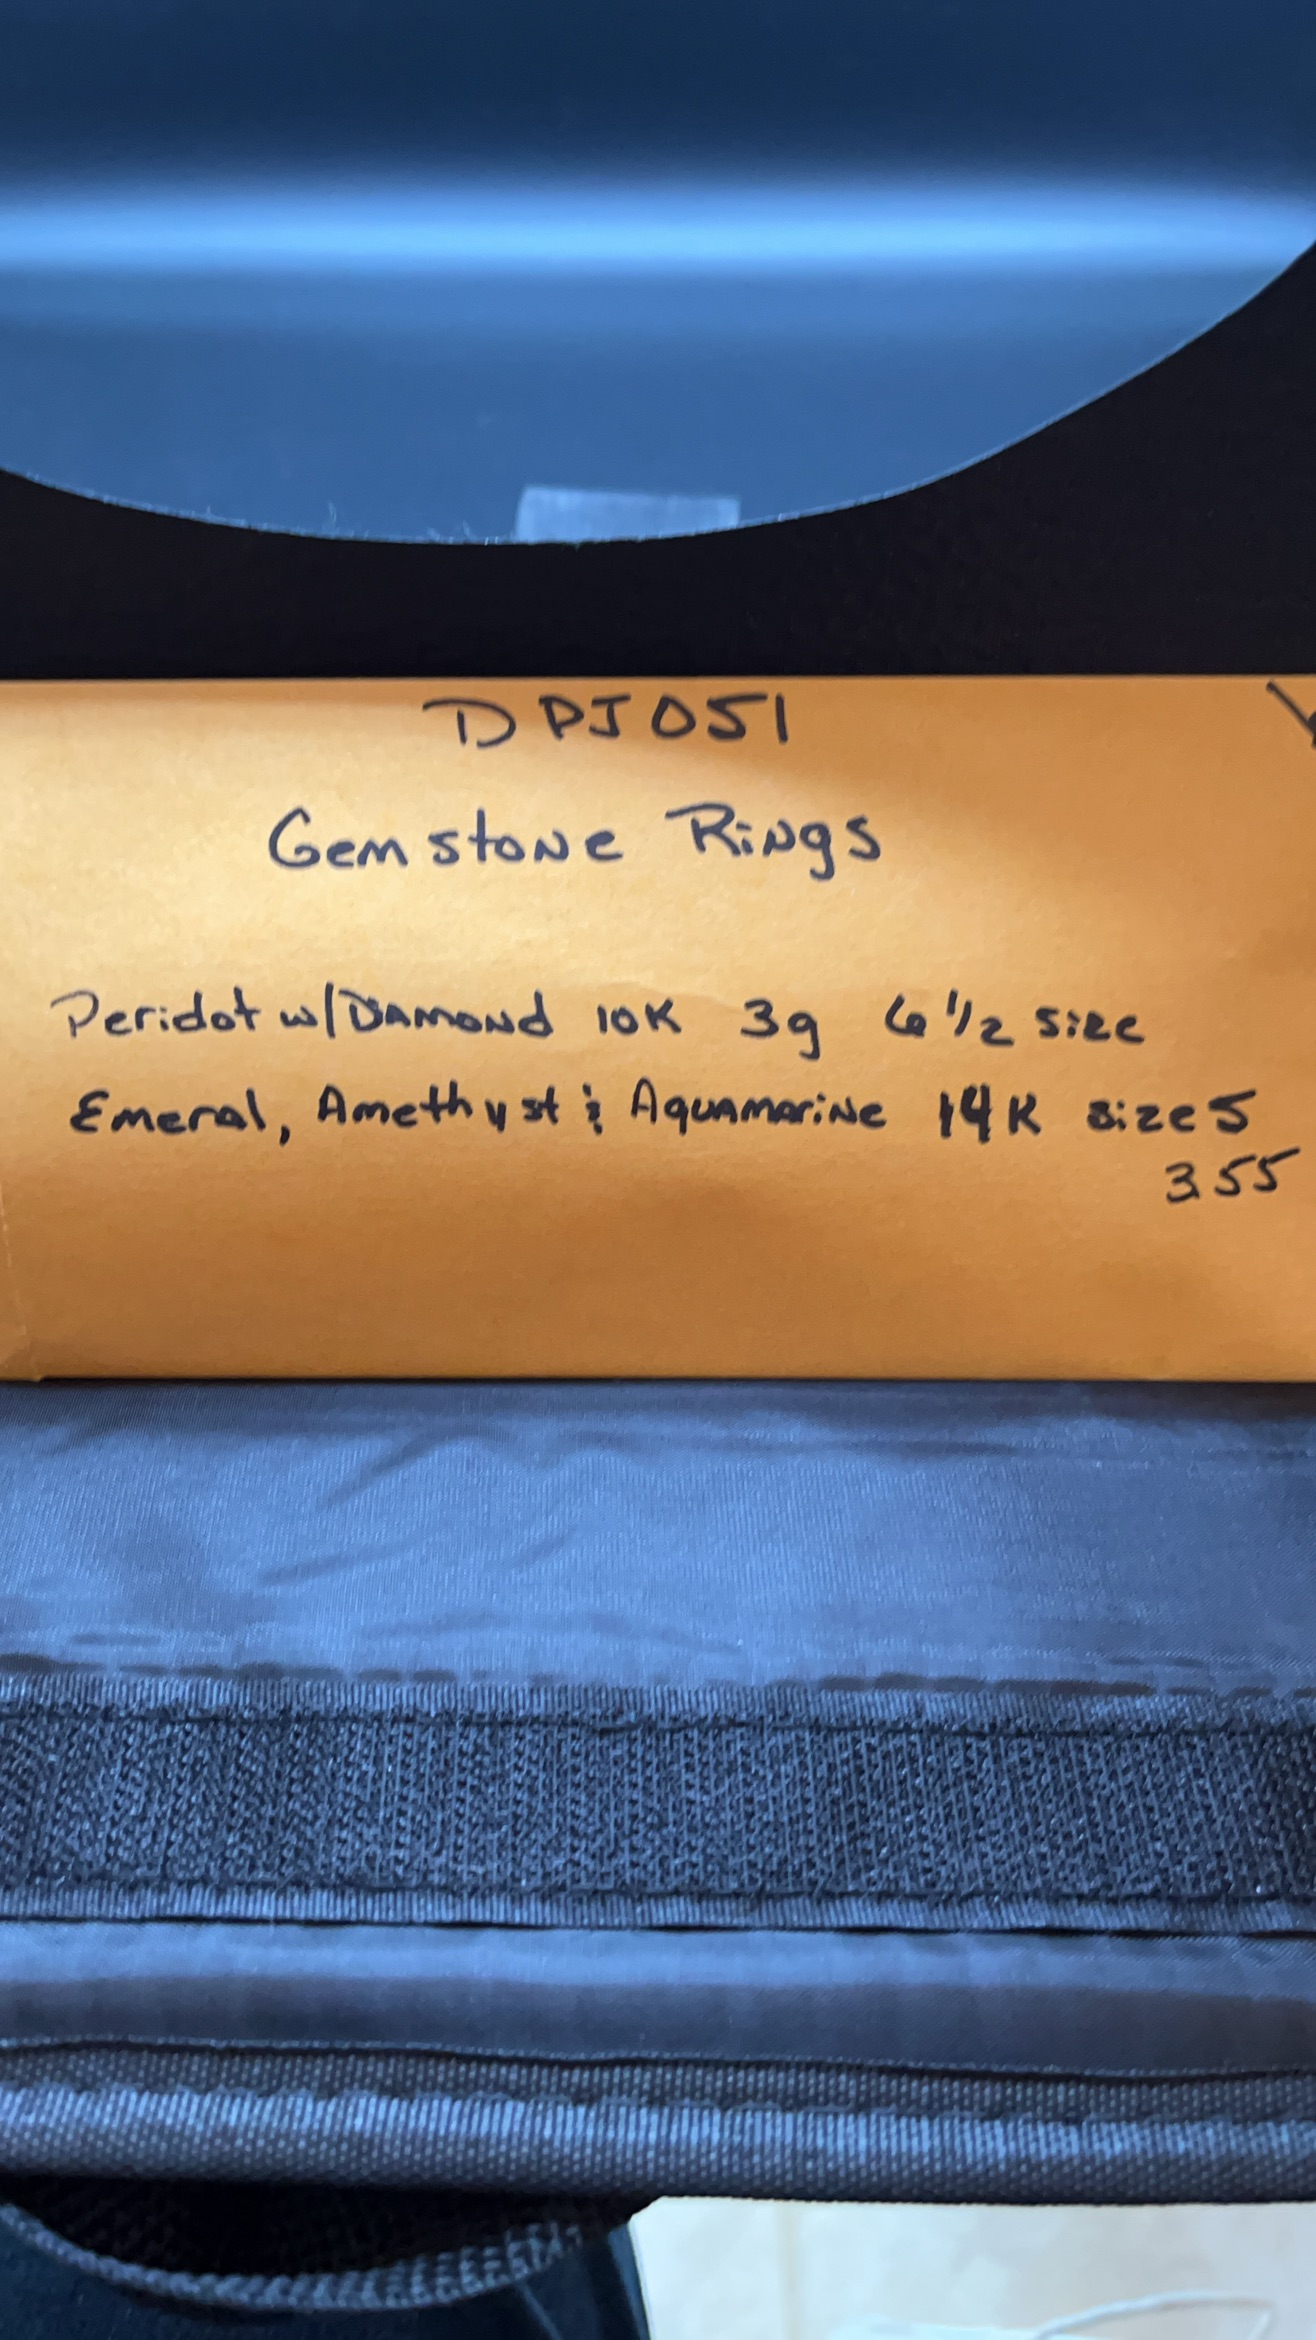 DPJ051
Gemstone Rings
Peridot w/Diamond 10K 3g 6 1/2 size
Emeral, Amethyst & Aquamarine 14K size 5
3.55